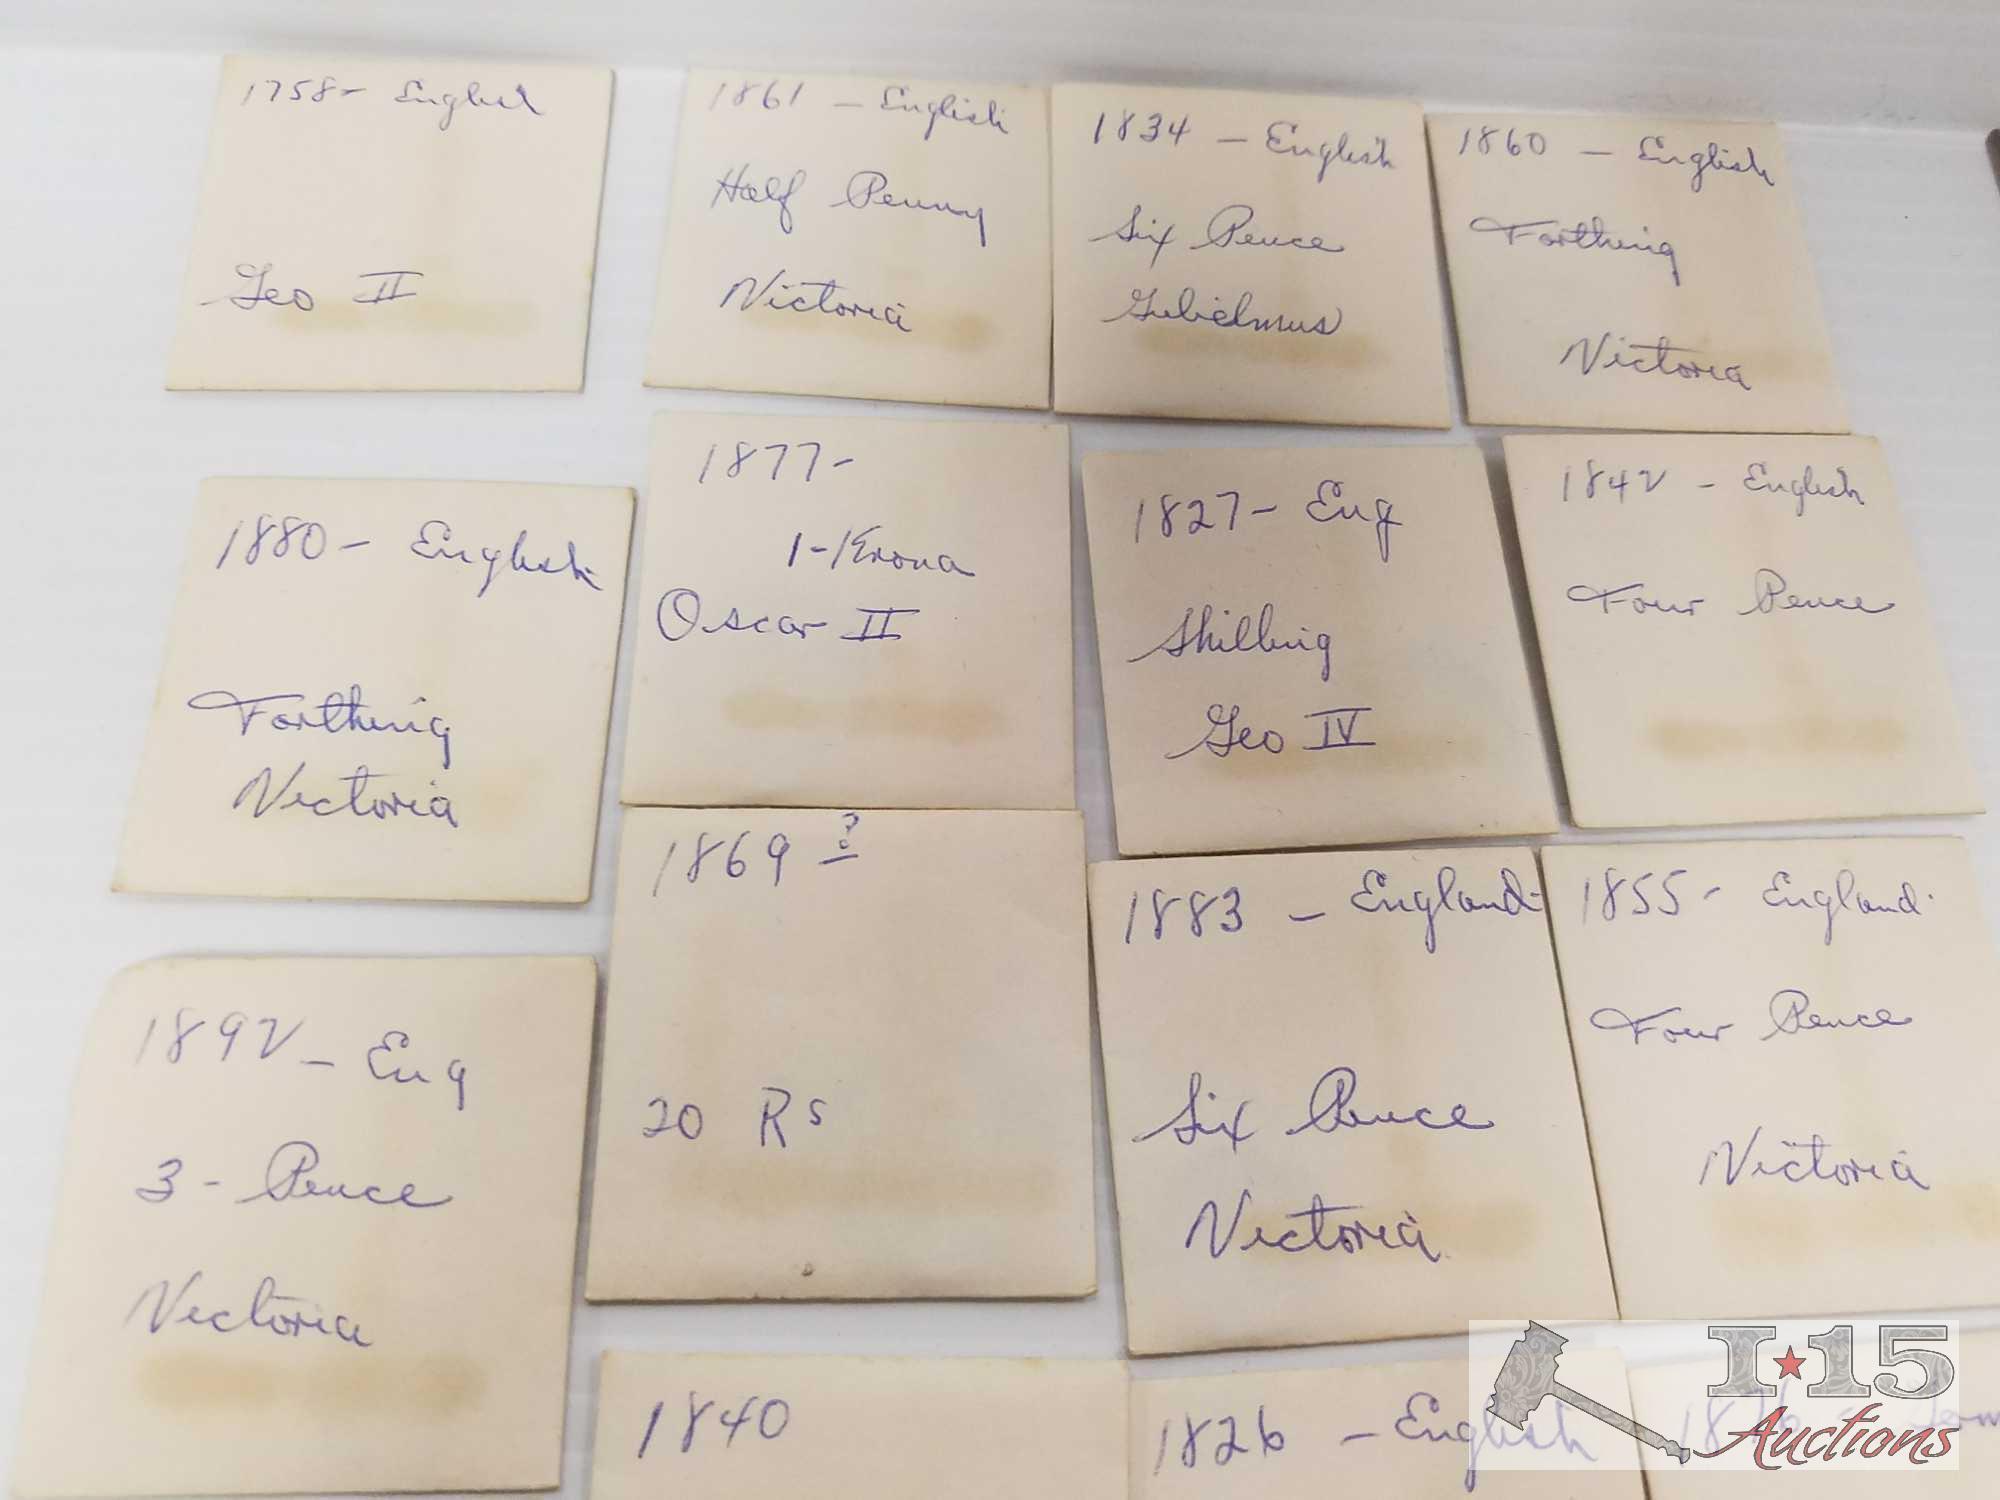 1758- English
Geo II
1861 - English
Half Penny
Victoria
1834 - English
Six Pence
Gulielmus
1860 - English
Farthing
Victoria
1880 - English
Farthing
Victoria
1877-
1-Krona
Oscar II
1827- Eng
Shilling
Geo IV
1842 - English
Four Pence
1892 - Eng
3 - Pence
Victoria
1869 ?
20 Rs
1883 - England
Six Pence
Victoria
1855 - England
Four Pence
Victoria
1840
1826 - English
I-15
Auctions